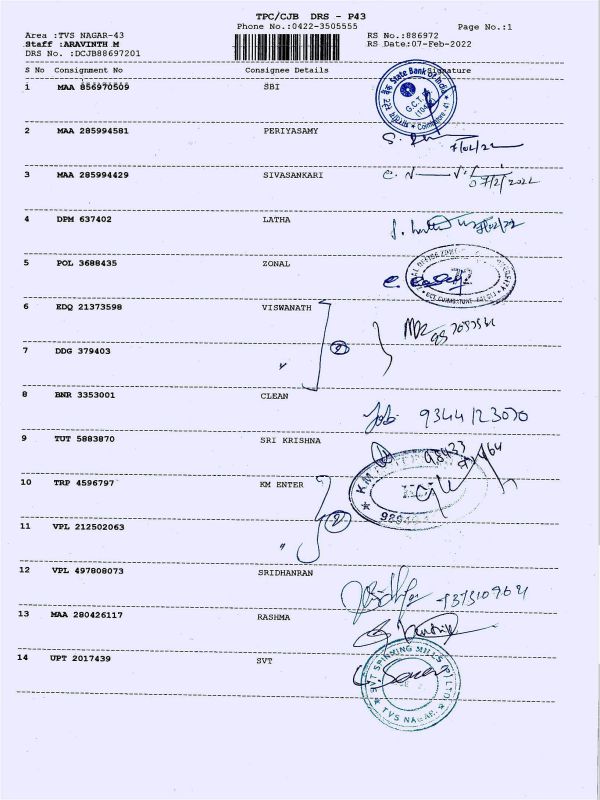 TPC/CJB DRS - P43
Phone No.:0422-3505555 Page No.:1
Area :TVS NAGAR-43 RS No.:886972
Staff :ARAVINTH M RS Date:07-Feb-2022
DRS No. :DCJB88697201
S No Consignment No Consignee Details Signature
1 MAA 856970509 SBI
State Bank of India
भारतीय स्टेट बैंक
Coimbatore - 41
2 MAA 285994581 PERIYASAMY
7/02/22
3 MAA 285994429 SIVASANKARI
07/2/2022
4 DPM 637402 LATHA
5 POL 3688435 ZONAL
6 EDQ 21373598 VISWANATH
7 DDG 379403 〃 2
8 BNR 3353001 CLEAN
9344123070
9 TUT 5883870 SRI KRISHNA
10 TRP 4596797 KM ENTER
KM
11 VPL 212502063 〃 2
12 VPL 497808073 SRIDHANRAN
13 MAA 280426117 RASHMA
14 UPT 2017439 SVT
SVT SPINNING MILLS (P) LTD
TVS NAGAR